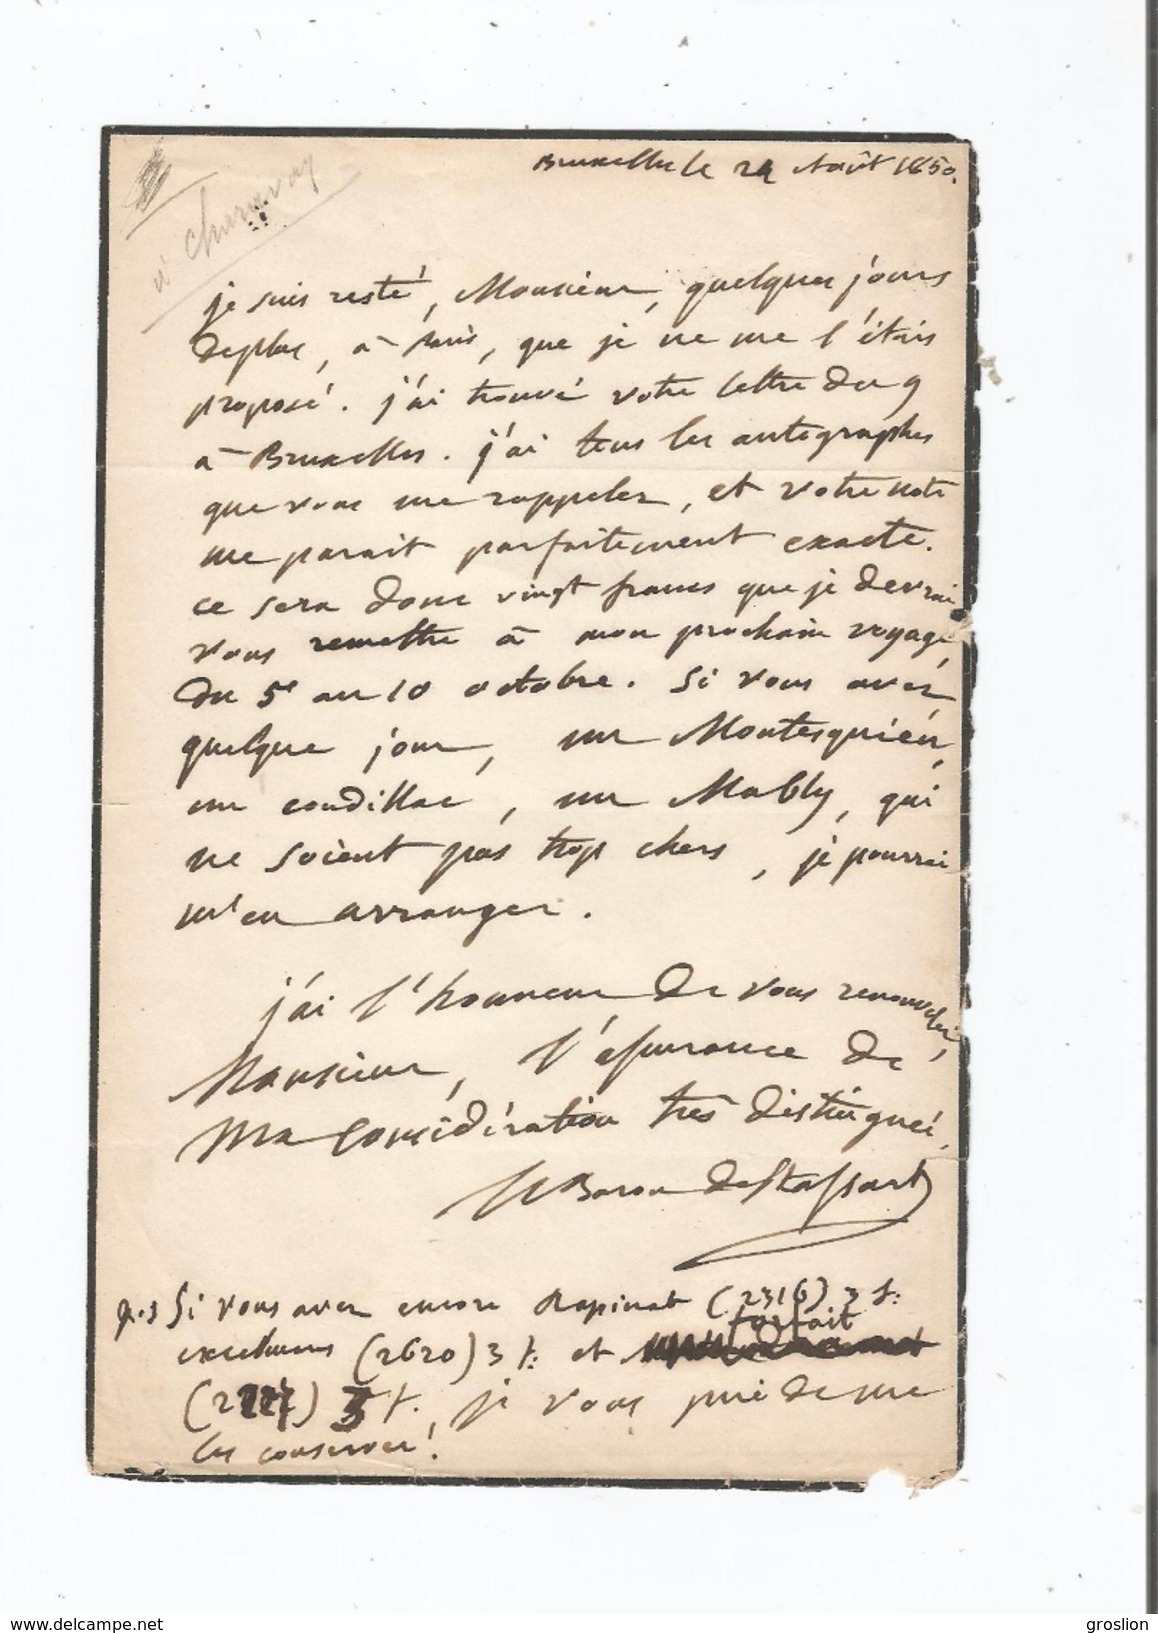 à Charavay
Bruxelles le 24 Août 1850.
je suis resté, Monsieur, quelques jours
de plus, à Paris, que je ne me l'étais
proposé. j'ai trouvé votre lettre du 9
à Bruxelles. j'ai tous les autographes
que vous me rappelez, et votre note
me parait parfaitement exacte.
ce sera donc vingt francs que je devrai
vous remettre à mon prochain voyage,
du 5 au 10 octobre. Si vous avez,
quelque jour, un Montesquieu,
un Condillac, un Mably, qui
ne soient pas trop chers, je pourrai
m'en arranger.
j'ai l'honneur de vous renouveler,
Monsieur, l'assurance de
ma considération très distinguée.
le Baron de Stassart
P.S Si vous avez encore Rapinat (2316) 3 f:
forfait
(2620) 3 f: et
3 f. je vous prie de me
les conserver.
delcampe.net
groslion